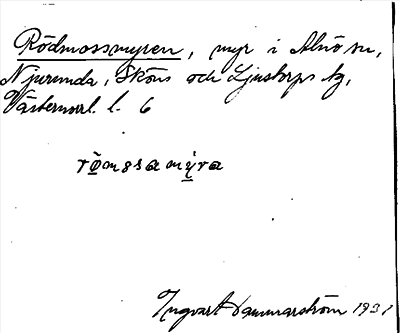 Rödmossmyren, myr i Alnö sn,
Njurunda, Sköns och Ljustorps tg,
Västernorrl. l. 6
rö̀mgsamy̆ra
Ingvart Hammarström 1931